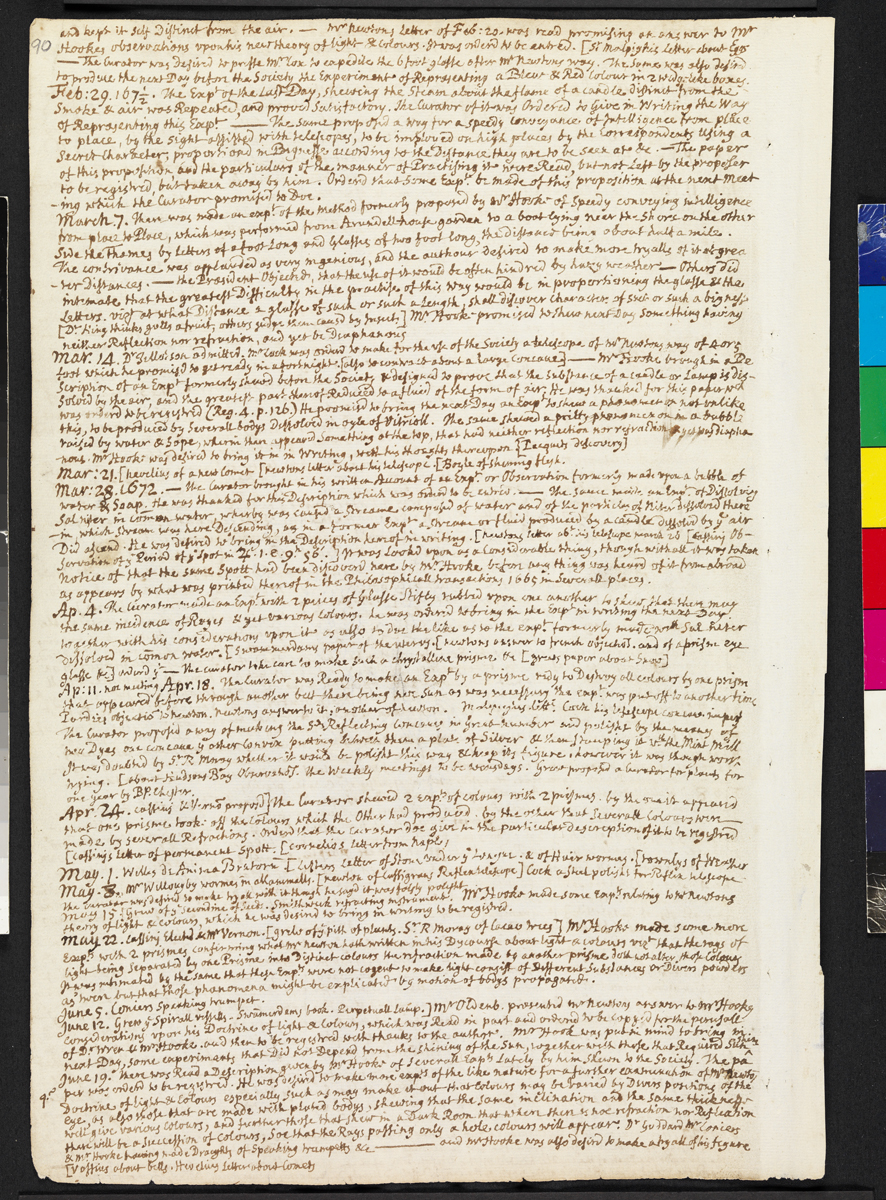 90
and kept it self Distinct from the air. — Mr Newtons Letter of Feb: 20. was read promising an answer to Mr
Hookes observations upon his new theory of light & colours. It was orderd to be entred. [Sr Malpighis Letter about Eggs
— The Curator was desired to presse Mr Cox to expedite the 6 foot glasse after Mr Newtons way. The same was also desired
to produce the next Day before the Society the Experiment of Representing a Blew & Red Colour in 2 wedg-like boxes.
Feb: 29. 167½. The Expt of the Last Day, shewing the Steam about the flame of a candle Distinct from the
Smoke & air was Repeated, and proved Satisfactory. The Curator of it was Ordred to Give in Writing the Way
of Representing this Expt — The Same proposed a way for a speedy conveyance of Intelligence from place
to place, by the sight assisted with telescopes, to be imployed on high places by the Correspondents Using a
Secret Character, proportiond in Bignesse according to the Distance they are to be seen at &c. — The paper
of this proposition and the particulars of the manner of Practising it were Read, but not Left by the proposer
to be registred, but taken away by him. Orderd that Some Expt be made of this proposition at the next Meet
-ing which the Curator promised to Doe.
March 7. There was made an expt of the Method formerly proposed by Mr Hooke of Speedy conveying intelligence
from place to Place, which was performed from Arundell house garden to a boat lying near the Shore on the other
Side the Thames by Letters of a foot Long and Glasses of two foot long, the distance being about half a mile.
The contrivance was applauded as very ingenious, and the authour desired to make more tryalls of it at grea
-ter Distances. — the President Objected, that the use of it would be often hindred by hazy weather — Others did
intimate that the greatest Difficulty in the practise of this way would be in proportioning the glasse & the
Letters. vizt at what Distance a glasse of such or such a Length, shall discover characters of such or such a bigness
[Dr King thinks galls a fruit, others judge them caused by Insects] Mr Hooke promised to shew next Day something having
neither Reflection nor refraction, and yet be Diaphanous
Mar. 14. Dr admitted. Mr Cock was orderd to make for the use of the Society a telescope of Mr Newtons way of 4 or 5
foot which he promised to get ready in a fortnight. [also to contract about a large Concave] — Mr Hooke brought in a De
scription of an Expt formerly shewd before the Society & designed to prove that the substance of a candle or Lamp is dis-
solved by the air, and the greatest part thereof Reduced to a fluid of the form of air. He was thanked for this paper wch
was orderd to be registred (Reg. 4. p. 126.) He promised to bring the next Day an Expt to shew a phenomenon not unlike
this, to be produced by Severall bodys Dissolved in oyle of Vitrioll. The same shewed a pretty phenomenon in a bubble
raised by water & Sope, wherein there appeared Something at the top, that had neither reflection nor refraction & yet was diapha
nous. Mr Hooke was desired to bring it in in Writing, with his thoughts thereupon. [Pecquets discovery]
Mar: 21. [hevelius of a new Comet [newtons letter about his telescope. [Boyle of shining flesh.
Mar: 28. 1672. — The Curator brought in his written Account of an Expt or Observation formerly made upon a bubble of
water & Soap. He was thanked for this Description which was orderd to be entred. — The same made an Expt of Dissolving
Salniter in comon water, whereby was caused a Streame composed of water and of the particles of Niter dissolved there
-in which stream was here Descending, as in a former Expt a Stream or fluid produced by a candle dissolved by ye air
Did ascend. He was desired to bring in the Description hereof in writing. [newtons letter abt his telescope march 26 [Cassinis Ob-
servation of ye Period of ye Spot in ♃. 1.e. 9h 56'.] It was Lookd upon as a Considerable thing, though withall it was taken
Notice of that the same Spott had been discovered here by Mr Hooke before any thing was heard of it from abroad
as appears by what was printed thereof in the Philosophicall transactions 1665 in Severall places.
Ap. 4. The Curator made an Expt with 2 pieces of Glasse Stifly rubbd upon one another to shew that there may
the same incidence of Rayes & yet various Colours. he was orderd to bring in the Expt in writing the next Day
together with his considerations upon it as also to doe the like as to the Expt formerly made with Sal Niter
dissolved in comon water. [Swammerdams paper of the uterus. [newtons answer to french objectns. and of a prisme eye
glasse &c] orderd yt — The Curator take care to make such a chrystalline prisme &c [grews paper about Snow]
Ap: 11. not meeting Apr. 18. The Curator was Ready to make an Expt by a prisme redy to Destroy all colours by one prism
that appeared before through another but there being noe Sun as was necessary the Expt was put off to another time
Pardies objectio to newton. newtons answer to it; another of newton. Malpighius letr. Cock his telescope concave imperf
The Curator proposed a way of making the Sd Reflecting Concaves in Great number and polisht by the means of
two Dyes one concave ye other Convex putting between them a plate of Silver & then Stamping it wth the Mint Mill
It was doubted by Sr. R. Moray whether it would be polisht this way & keep its figure, however it was though worth
trying. [about Hudsons Bay Observatns. the Weekly meetings to be wensdays. Grew proposd a Curator for plants for
one year by BP. Chester.
Apr. 24. Cassius Silvernis proposd] The Curator shewed 2 Expts of colours with 2 prismes. by the one it appeard
that one prisme took off the Colours which the Other had produced. by the other that Severall Colours were
made by severall Refractions. Orderd that the Curator doe give in the particular description of it to be registred
[Cassinis Letter of permanent Spott. [Cornelio's letter from Naples
May. 1. Willes de Anima Brutorum [Listers Letter of Stone under ye tongue. & of Hair wormes. [townlys of Weather
May. 8. Mr Willoughby wormes in all animalls. [newton of Cassigrains Reflex telescope] Cock a Steel polisht for Reflex telescope
the Curator was desired to make tryall with it though he sayd it was softly polisht
May 15 [Grew of ye Secundine of seeds. Smithwick refracting instrument. Mr Hooke made some Expt relating to Mr Newtons
theory of light & colours, which he was desired to bring in writing to be registred.
May 22. Cassini Elected & Mr Vernon. [Grew of ye pith of plants. Sr. R Moray of Cacao trees] Mr Hooke made some more
Expts with 2 prismes confirming what Mr newton hath written in his Dyscourse about light & colours vizt that the rays of
light being separated by one Prisme into Distinct colours the refraction made by another prisme doth not alter those Colours
It was intimated by the same that these Expts were not cogent to make light consist of Different Substances or Divers powders
as twere but that those phenomena might be explicated by motion of bodys propagated.
June 5. Coniers Speaking trumpet.
June 12. Grews Spirall vessells - Swammerdams book. Perpetuall Lamp.] Mr Oldenb. presented Mr Newtons answer to Mr Hooks
considerations upon his Doctrine of light & Colours, which was Read in part and orderd to be copyd for the perusall
of Dr Wren & Mr Hooke. and then to be registred with thanks to the author. Mr Hook was put in mind to bring in
next Day, some experiments that Did not Depend from the shining of the Sun, together with those that Required Sunshine
June 19. There was Read a Description given by Mr Hooke of Severall Expts Lately by him Shewn to the Society. The pa
per was orderd to be registred. He was desired to make more expts of the like nature for a further examination of Mr Newtons
Doctrine of light & Colours especially such as may make it out that colours may be varied by Divers positions of the
eye, as also those that are made with plated bodys, shewing that the same inclination and the same thicknesse
will give various colours, and further those that shew in a Dark Room that where there is noe refraction nor Reflection
there will be a Succession of Colours, Soe that the Rays passing only a hole colours will appear. Dr Goddard Mr Coniers
& Mr Hooke having made Draughts of Speaking trumpetts &c — and Mr Hooke was also desird to make a tryall of his figure
[Vossius about bells. Hevelius Letter about Comets